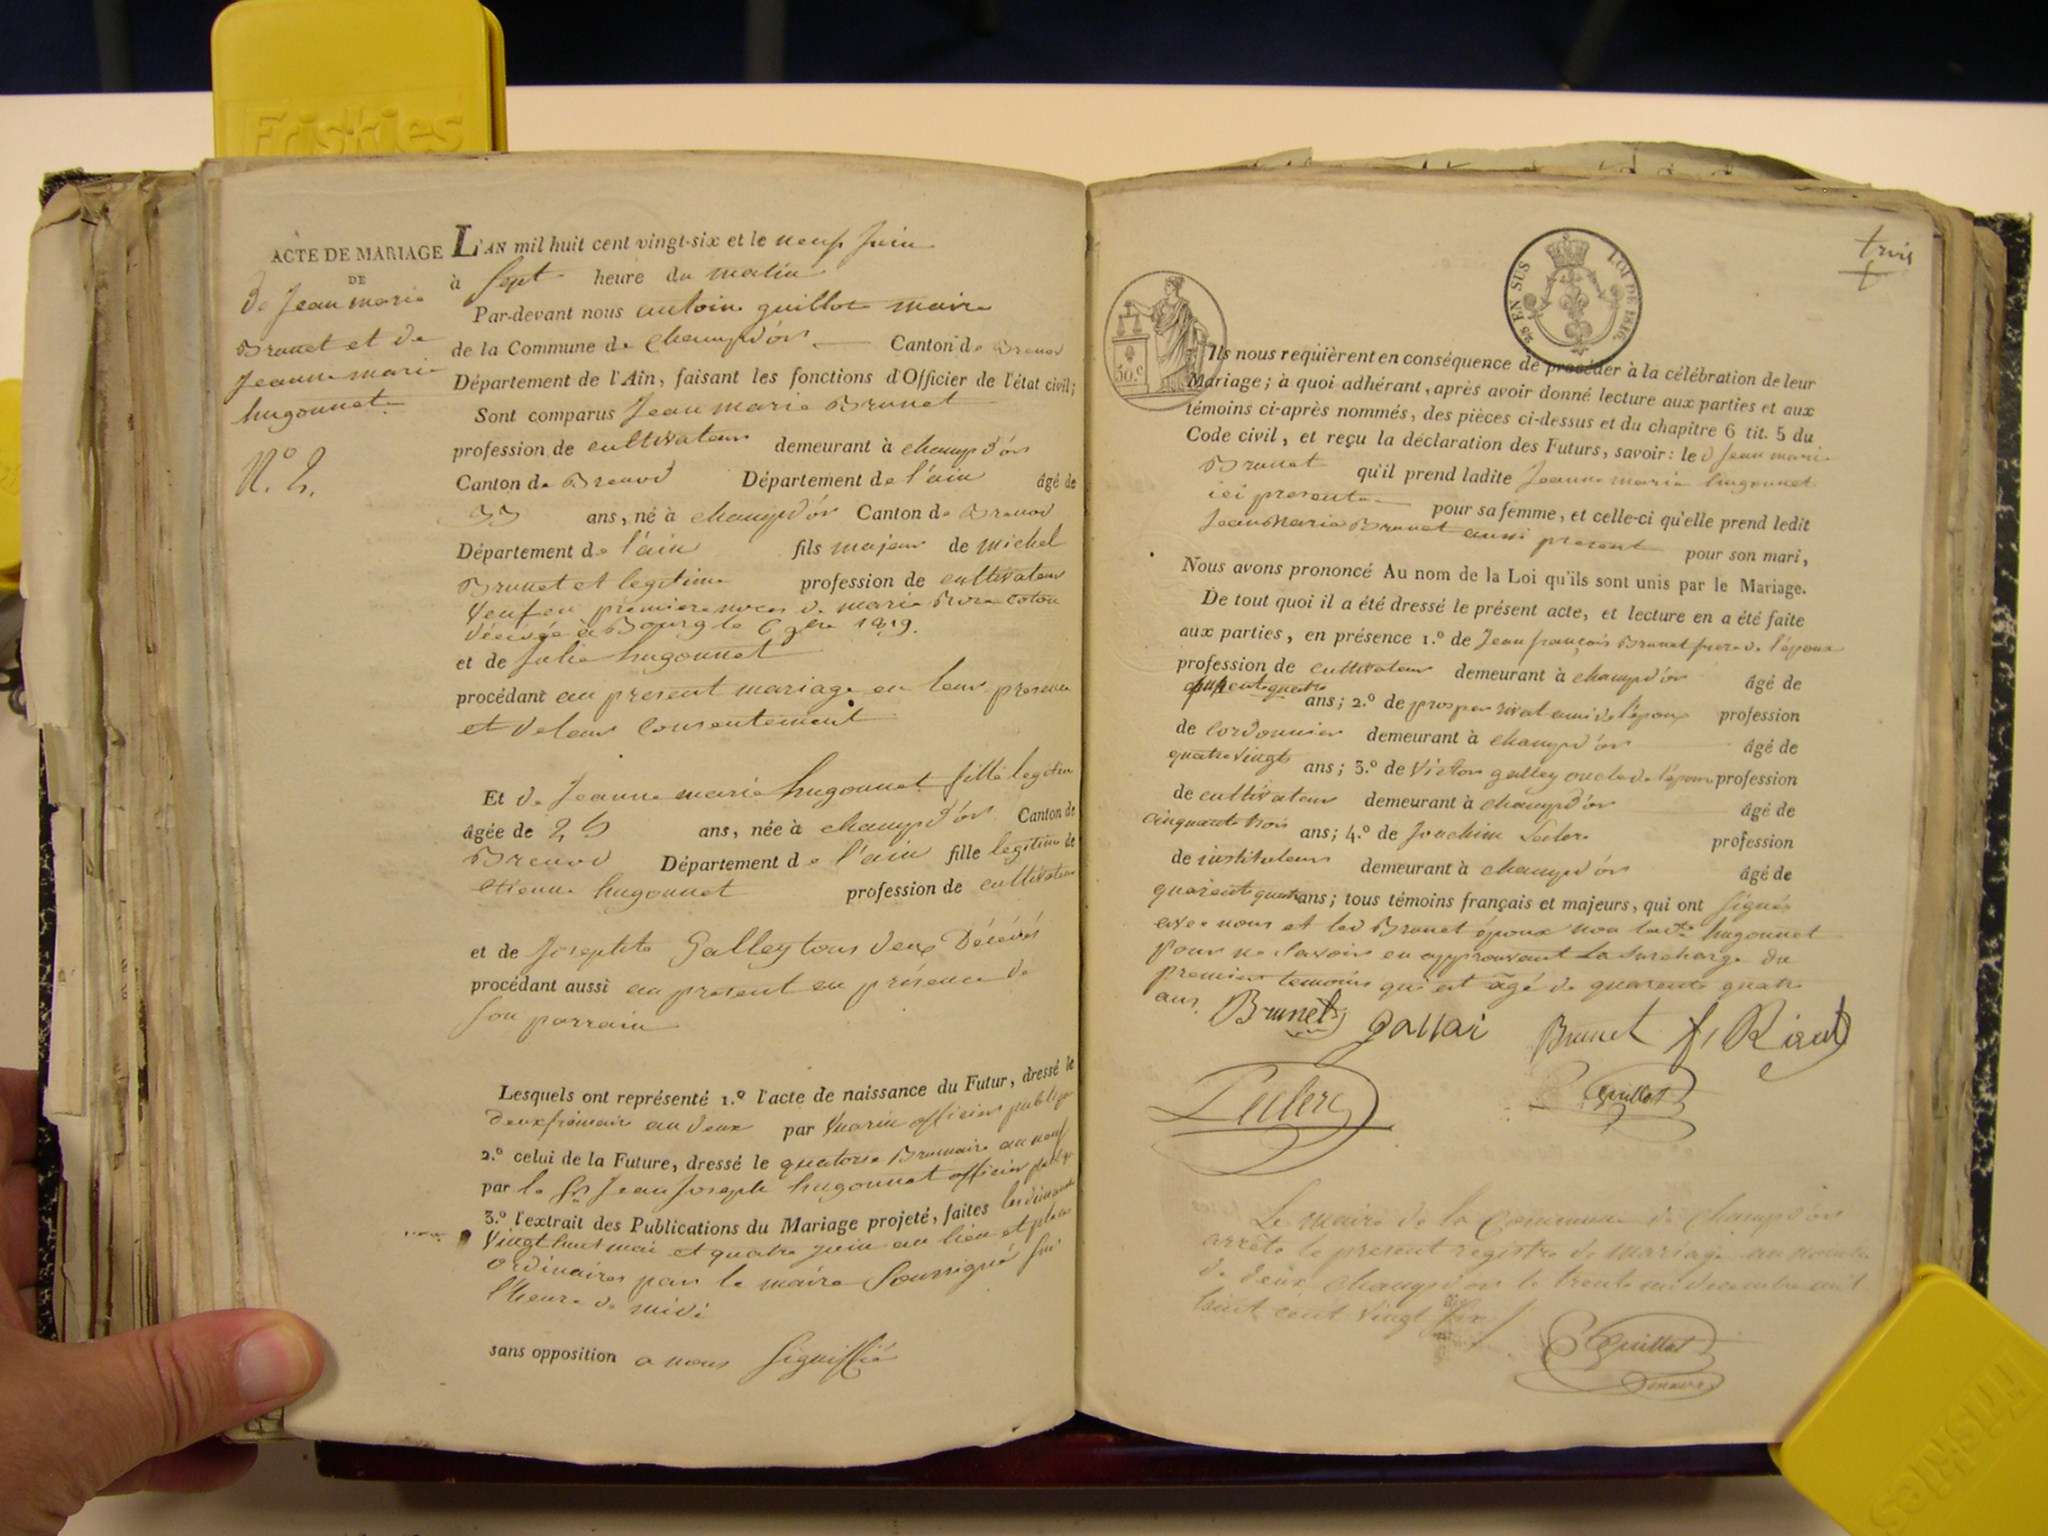 Friskies
ACTE DE MARIAGE
DE
De Jean marie
Brunet et de
Jeanne marie
hugonnet
N.º 2.
L'AN mil huit cent vingt-six et le neuf Juin
à Sept heure du matin
Par-devant nous antoine guillot maire
de la Commune de Champd'or Canton de Brenod
Département de l'Ain, faisant les fonctions d'Officier de l'état civil;
Sont comparus Jean marie Brunet
profession de cultivateur demeurant à champd'or
Canton de Brenod Département de l'ain âgé de
33 ans, né à champd'or Canton de Brenod
Département de l'ain fils majeur de michel
Brunet et legitime profession de cultivateur
Veuf en premiere noces de marie coton
décédée à Bourg le 6 9bre 1819.
et de Julie hugonnet
procédant au present mariage en leur presence
et de leur consentement
Et de Jeanne marie hugonnet fille legitime
âgée de 25 ans, née à champd'or Canton de
Brenod Département de l'ain fille legitime de
etienne hugonnet profession de cultivateur
et de Josephte Galley tous deux Décédés
procédant aussi au present en présence de
son parrain
Lesquels ont représenté 1.º l'acte de naissance du Futur, dressé le
deux frimaire an deux par officier public
2.º celui de la Future, dressé le quatorse Brumaire an neuf
par le Sr Jean Joseph hugonnet officier public
3.º l'extrait des Publications du Mariage projeté, faites les dimanche
Vingt huit mai et quatre juin au lieu et place
ordinaires par le maire Soussigné sur
l'heure de midi
sans opposition a nous signiffié
trois
2/5 EN SUS LOI DE 1816
50.c
Ils nous requièrent en conséquence de procéder à la célébration de leur
Mariage; à quoi adhérant, après avoir donné lecture aux parties et aux
témoins ci-après nommés, des pièces ci-dessus et du chapitre 6 tit. 5 du
Code civil, et reçu la déclaration des Futurs, savoir: le d Jean marie
Brunet qu'il prend ladite Jeanne marie hugonnet
ici presente pour sa femme, et celle-ci qu'elle prend ledit
Jean Marie Brunet aussi present pour son mari,
Nous avons prononcé Au nom de la Loi qu'ils sont unis par le Mariage.
De tout quoi il a été dressé le présent acte, et lecture en a été faite
aux parties, en présence 1.º de Jean françois Brunet frere de l'époux
profession de cultivateur demeurant à champd'or âgé de
quarente quatre ans; 2.º de prosper rivat ami de l'époux profession
de cordonnier demeurant à champd'or âgé de
quatre vingt ans; 3.º de Victor galley oncle de l'épouse profession
de cultivateur demeurant à champd'or âgé de
cinquante trois ans; 4.º de Joachim Leclerc profession
de instituteur demeurant à champd'or âgé de
quarente quatre ans; tous témoins français et majeurs, qui ont signés
avec nous et led Brunet époux non lad.te hugonnet
pour ne savoir en approuvant la surcharge du
premier temoins qui est âgé de quarente quatre
ans.
Brunet gallai Brunet f, Rivat
Leclerc Guillot
Le maire de la Commune de Champd'or
arrête le present registre de mariage au nombre
de deux, Champd'or le trente un decembre mil
huit cent vingt six
Guillot
maire
Friskies